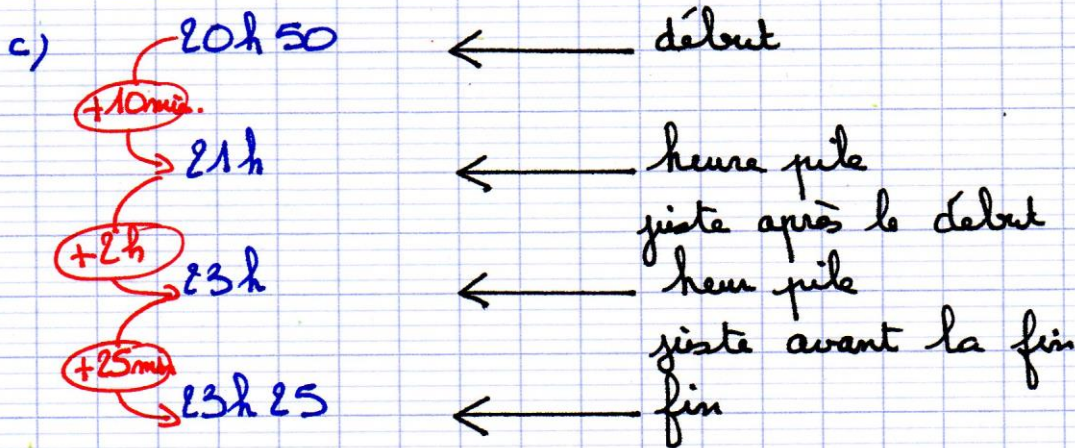 c) 20h50 ← début
+10min.
21h ← heure pile
juste après le début
+2h
23h ← heur pile
juste avant la fin
+25min
23h25 ← fin